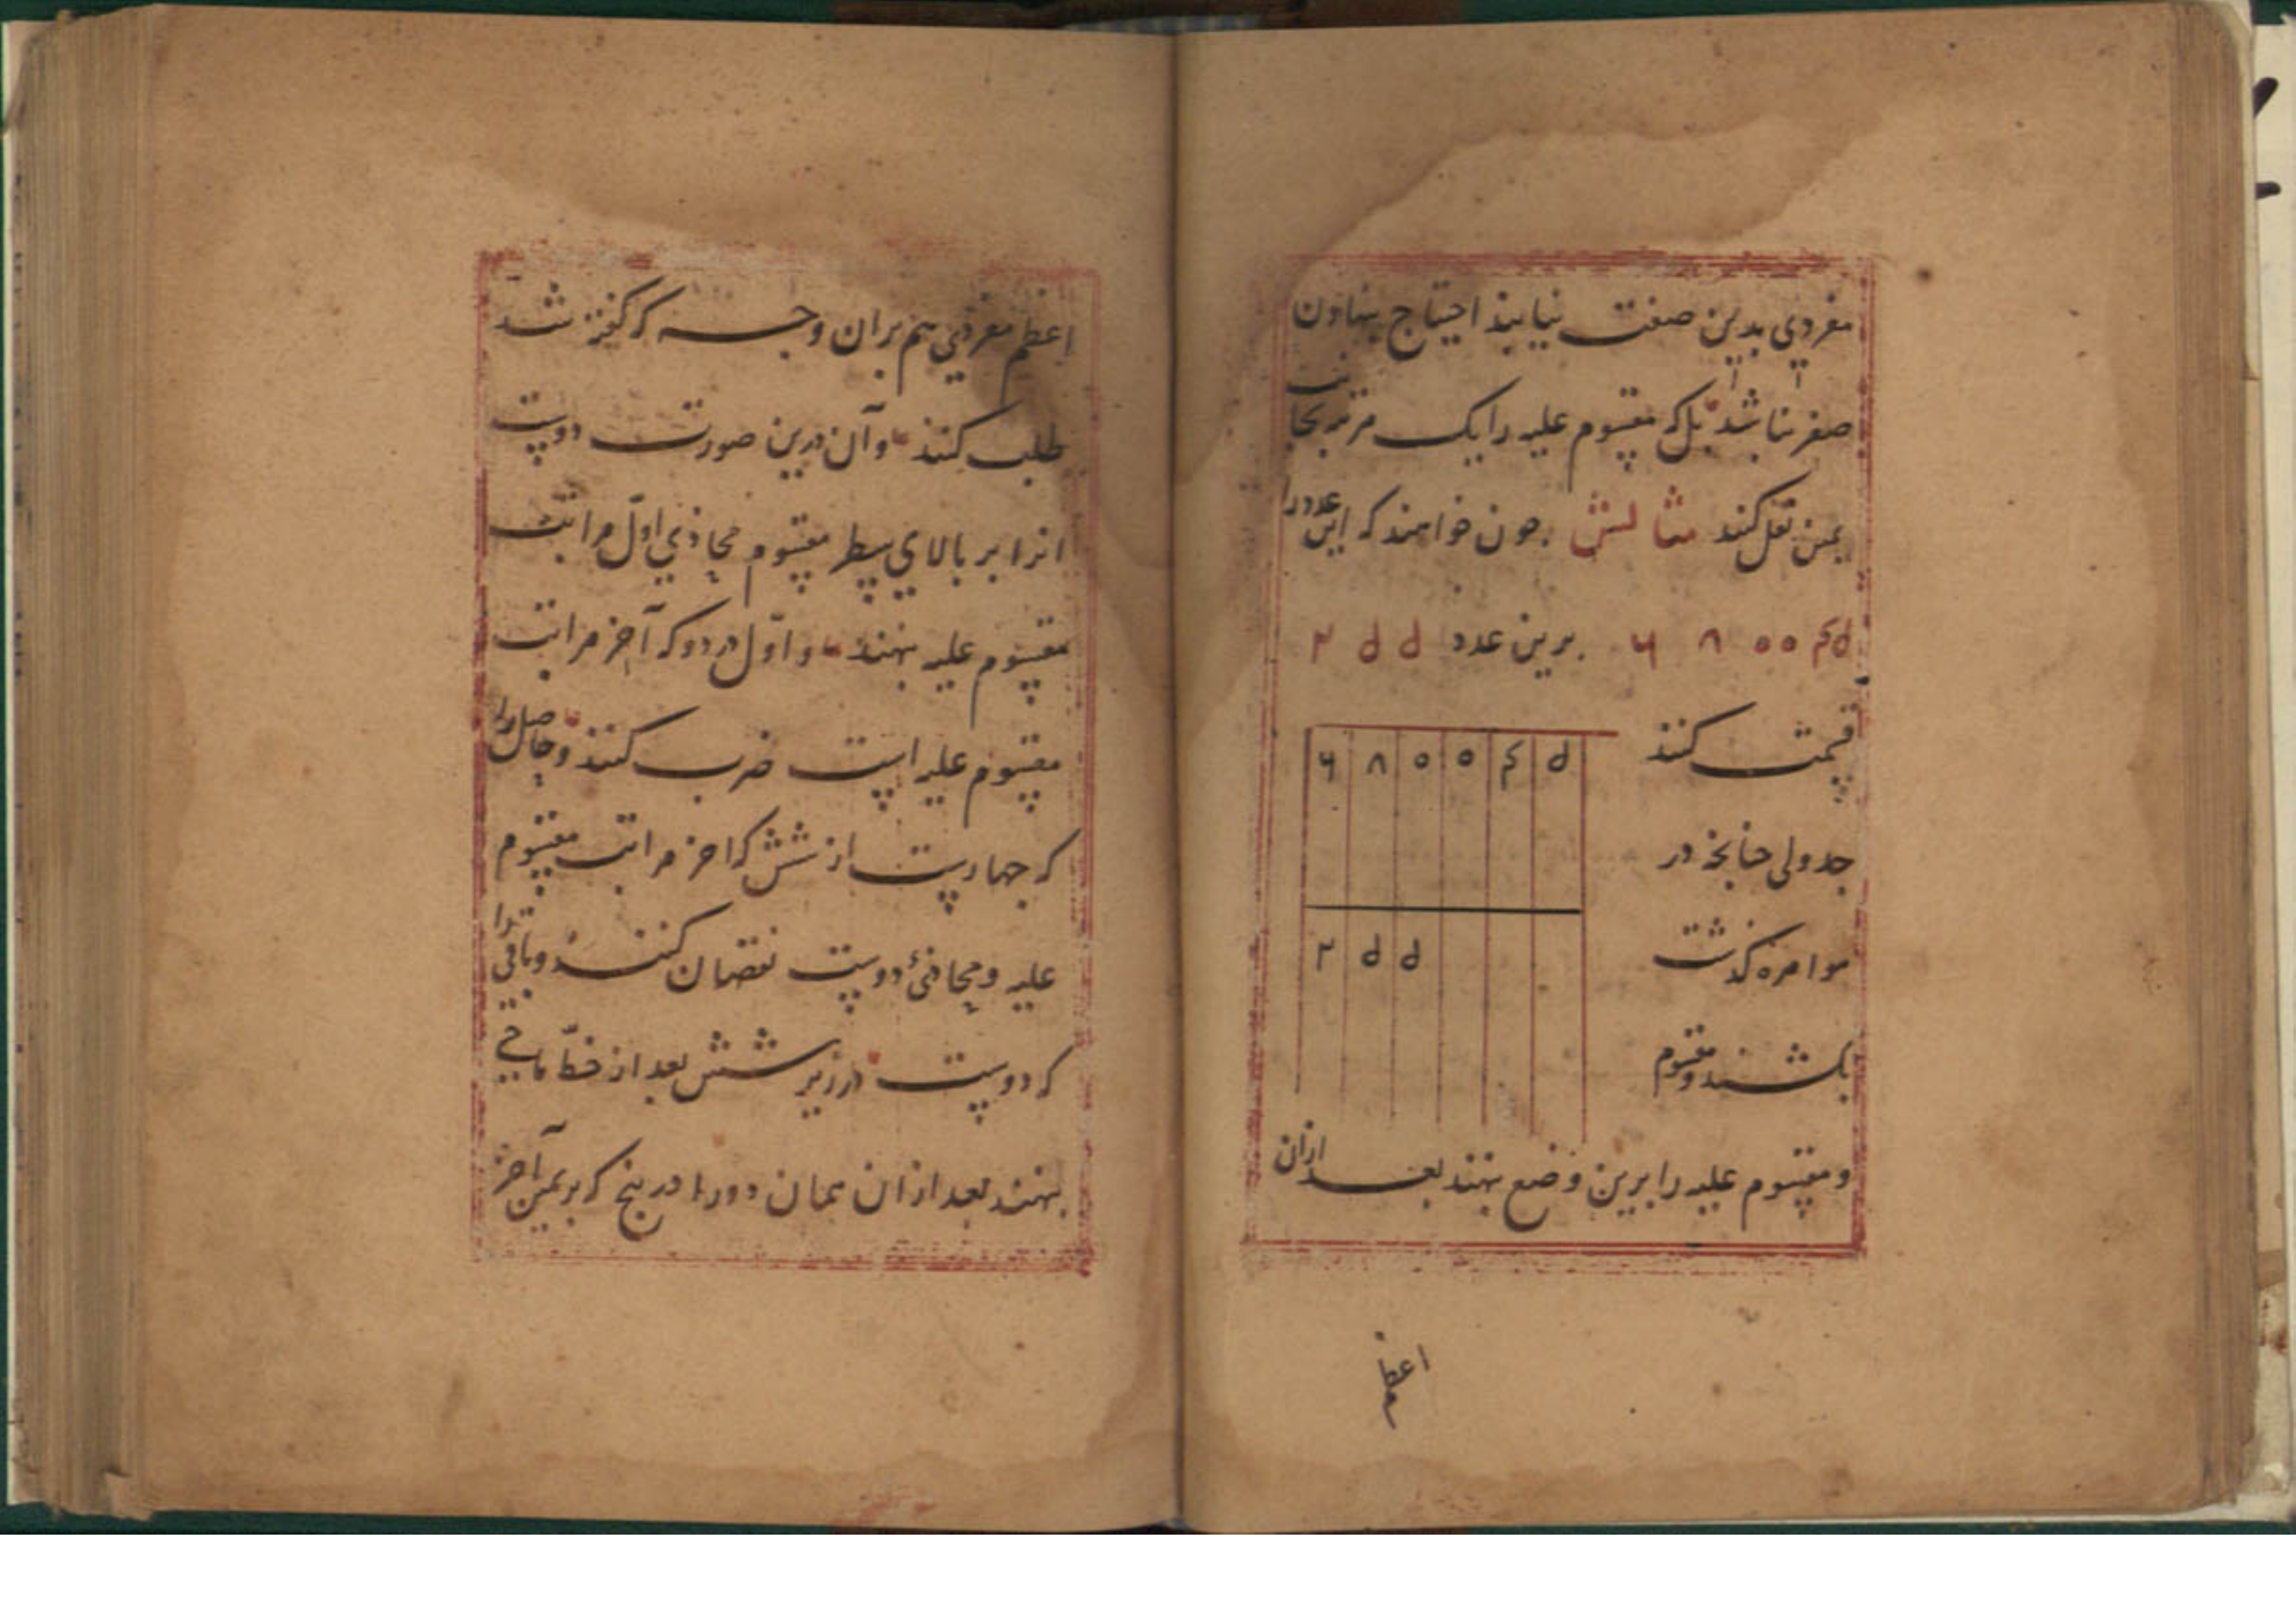 مفردی بدین صفت نیابند احتیاج بنهادن
صفر نباشد بلکه مقسوم علیه را یک مرتبه بجانب
یمین نقل کنند مثالش چون خواهند که این عدد را
۶ ۸ ۰ ۰ ۴ ۵ برین عدد ۲ ۵ ۵
قسمت کنند
۶ ۸ ۰ ۰ ۴ ۵
جدولی چنانچه در
موامره گذشت
۲ ۵ ۵
بکشند و مقسوم
و مقسوم علیه را برین وضع بنهند بعد ازان
اعظم
اعظم مفردی هم بران وجه که گفته شد
طلب کنند و آن درین صورت دوست
انرا بر بالای سطر مقسوم محاذی اول مراتب
مقسوم علیه بنهند و اول در دو که آخر مراتب
مقسوم علیه است ضرب کنند و حاصل را
که چهارست از شش که اخر مراتب مقسوم
علیه و محاذی دوست نقصان کنند و باقی را
که دوست در زیر شش بعد از خط ماحی
بنهند بعد ازان همان دو را در پنج که بر یمین آخر